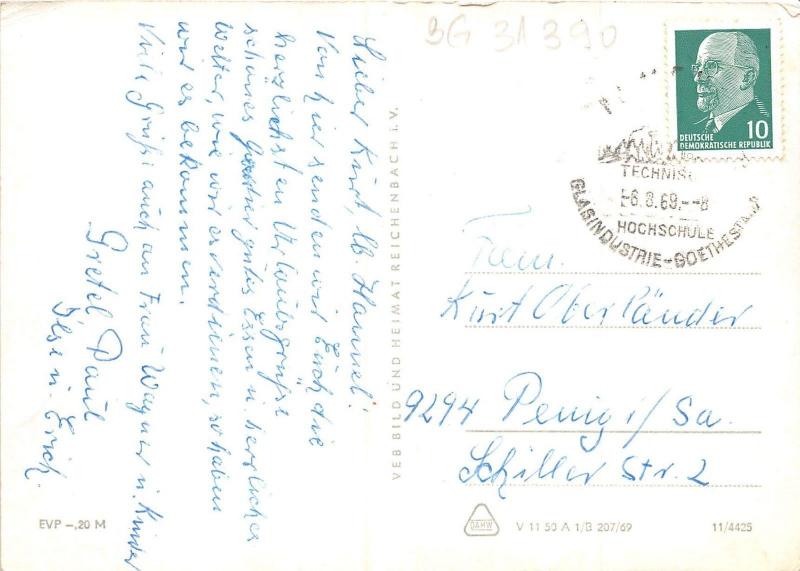 BG 31 390
Lieber Kurt, lb. Hannel!
Von hier senden wir Euch die
herzlichsten Urlaubsgrüße
schönes Quartier gutes Essen u. herrliches
Wetter, wie wir es verdienen, so haben
wir es bekommen.
Viele Grüße auch an Frau Wagner u. Kinder
Gretel Paul
Ilse u. Erich.
EVP –,20 M
VEB BILD UND HEIMAT REICHENBACH I. V.
10
DEUTSCHE
DEMOKRATISCHE REPUBLIK
TECHNIS
-6.8.69.--8
HOCHSCHULE
GLASINDUSTRIE-GOETHEST
Fam.
Kurt Oberländer
9294 Penig i/Sa.
Schiller Str. 2
DAHW
V 11 50 A 1/B 207/69
11/4425